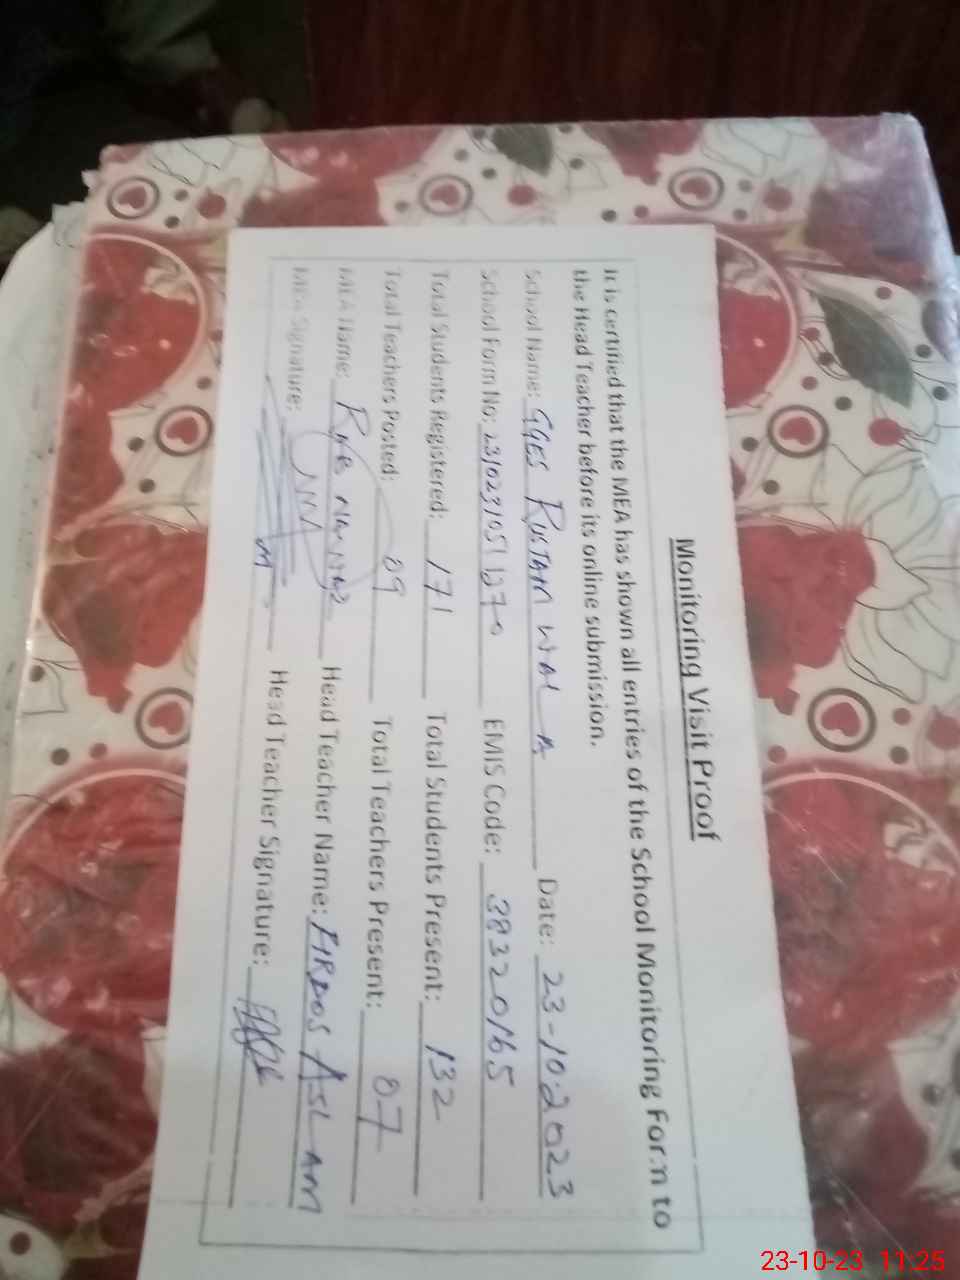 Monitoring Visit Proof
It is certified that the MEA has shown all entries of the School Monitoring Form to
the Head Teacher before its online submission.
School Name: GGES RUSTAM WALA Date: 23-10-2023
School Form No: EMIS Code: 38320165
Total Students Registered: 171 Total Students Present: 132
Total Teachers Posted: 09 Total Teachers Present: 07
MEA Name: Head Teacher Name: FIRDOS ASLAM
MEA Signature: Head Teacher Signature:
23-10-23 11:25